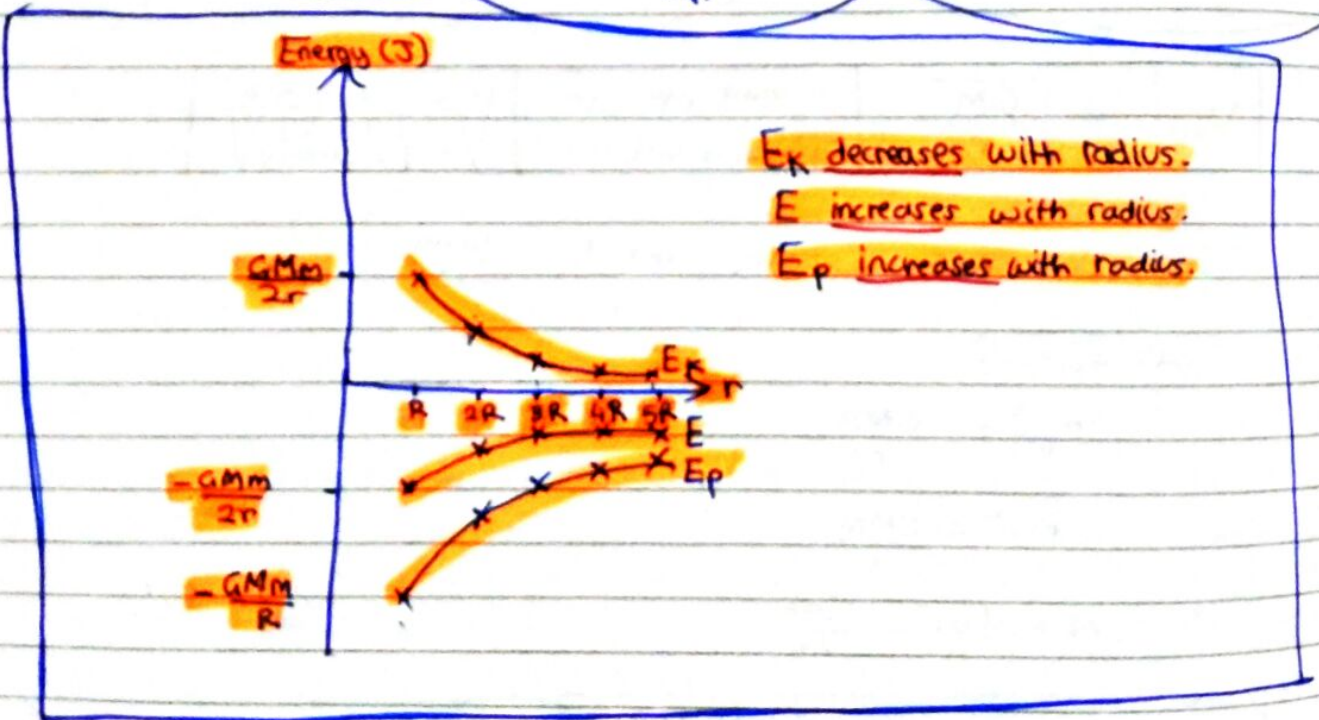 Energy (J)
E_K decreases with radius.
E increases with radius.
E_p increases with radius.
GMm
2r
E_K
r
R 2R 3R 4R 5R
E
E_p
-GMm
2r
-GMm
R